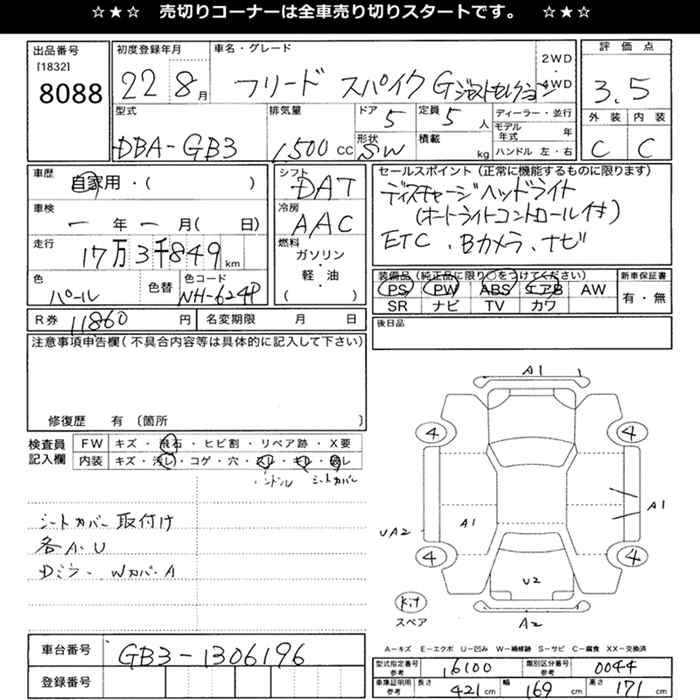 ☆★☆ 売切りコーナーは全車売り切りスタートです。 ☆★☆
出品番号
[1832]
8088
初度登録年月
22 8月
車名・グレード
フリード スパイク Gジャストセレクション
2WD
4WD
評価点
3.5
外装 内装
C C
型式
DBA-GB3
排気量
1,500 cc
ドア
5
形状
SW
定員
5 人
積載
kg
ディーラー・並行
モデル年式 年
ハンドル 左・右
車歴
自家用・( )
車検
ー 年 ー 月( 日)
走行
17万3千849 km
色
パール
色替
色コード
NH-624P
シフト
DAT
冷房
AAC
燃料
ガソリン
・
軽・油
( )
セールスポイント(正常に機能するものに限ります)
ディスチャージヘッドライト
(オートライトコントロール付き)
ETC.Bカメラ.ナビ
装備品(純正品に限り○をつけてください)
PS PW ABS エアB AW
SR ナビ TV カワ
新車保証書
有・無
R券 11860 円
名変期限 月 日
後日品
注意事項申告欄(不具合内容等は具体的に記入して下さい)
修復歴 有〔箇所 〕
検査員
記入欄
FW キズ・飛石・ヒビ割・リペア跡・X要
内装 キズ・汚レ・コゲ・穴・スレ・キレ・破レ
ハンドル シートカバー
シートカバー取付け
各A.U
Dミラー Wカバー A
A1
4 4
UA2 A1 A1
4 4
U2
Kit
スペア
A2
A−キズ E−エクボ U−凹み W−補修跡 S−サビ C−腐食 XX−交換済
車台番号
GB3-1306196
登録番号
型式指定番号
参考
16100
類別区分番号
参考
0044
車庫証明用
参考
長さ 421 cm
幅 169 cm
高さ 171 cm